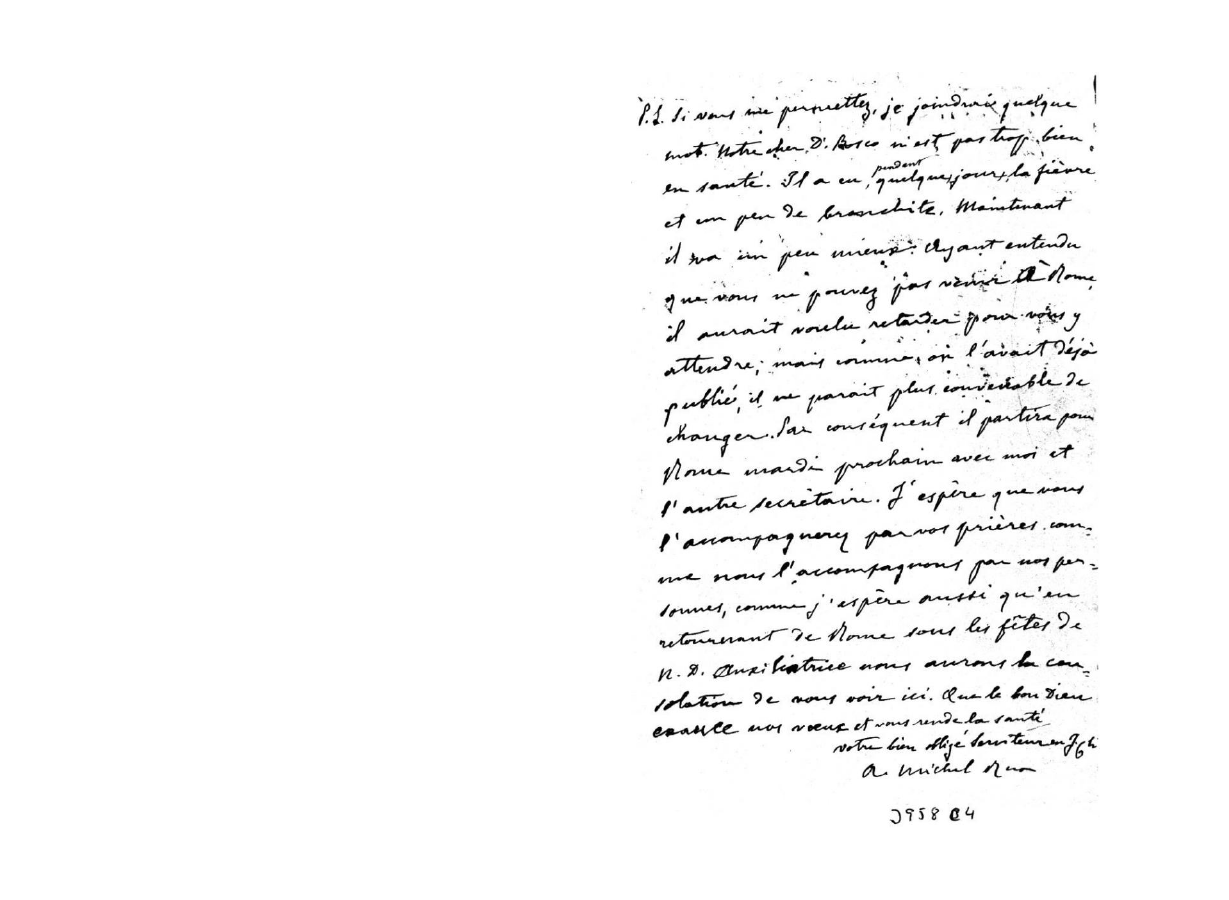 P.S. Si vous me permettez, je joindrai quelque
mot. Notre cher D. Bosco n'est pas trop bien
en santé. Il a eu, pendant quelques jours, la fièvre
et un peu de bronchite. Maintenant
il va un peu mieux. Ayant entendu
que vous ne pouvez pas venir à Rome,
il aurait voulu retarder pour vous y
attendre; mais comme on l'avait déjà
publié, il ne parait plus convenable de
changer. Par conséquent il partira pour
Rome mardi prochain avec moi et
l'autre secrétaire. J'espère que vous
l'accompagnerez par vos prières com-
me nous l'accompagnons par nos per-
sonnes, comme j'espère aussi qu'en
retournant de Rome sous les fêtes de
N. D. Auxiliatrice nous aurons la con-
solation de vous voir ici. Que le bon Dieu
exauce nos vœux et vous rende la santé
votre bien obligé Serviteur en J. Ch
Michel Rua
J958 C4